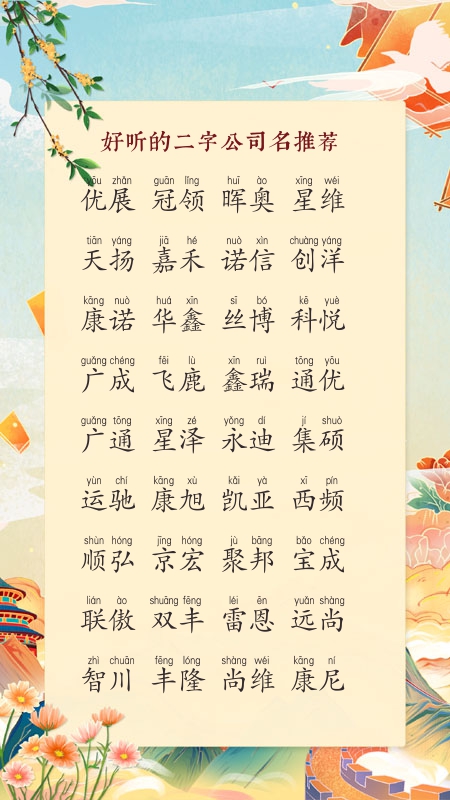 好听的二字公司名推荐
yōu zhǎn guān lǐng huī ào xīng wéi
优展 冠领 晖奥 星维
tiān yáng jiā hé nuò xìn chuàng yáng
天扬 嘉禾 诺信 创洋
kāng nuò huá xīn sī bó kē yuè
康诺 华鑫 丝博 科悦
guǎng chéng fēi lù xīn ruì tōng yōu
广成 飞鹿 鑫瑞 通优
guǎng tōng xīng zé yǒng dí jí shuò
广通 星泽 永迪 集硕
yùn chí kāng xù kǎi yà xī pín
运驰 康旭 凯亚 西频
shùn hóng jīng hóng jù bāng bǎo chéng
顺弘 京宏 聚邦 宝成
lián ào shuāng fēng léi ēn yuǎn shàng
联傲 双丰 雷恩 远尚
zhì chuān fēng lóng shàng wéi kāng ní
智川 丰隆 尚维 康尼